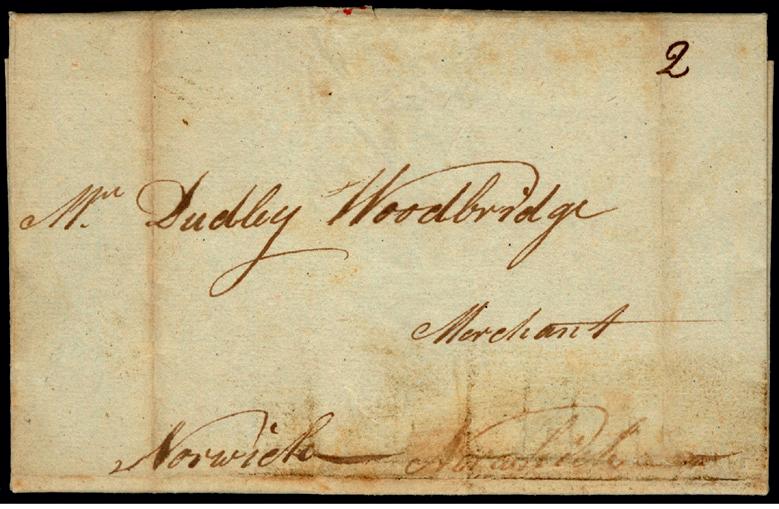 2
Mr. Dudley Woodbridge
Merchant
Norwich Norwich